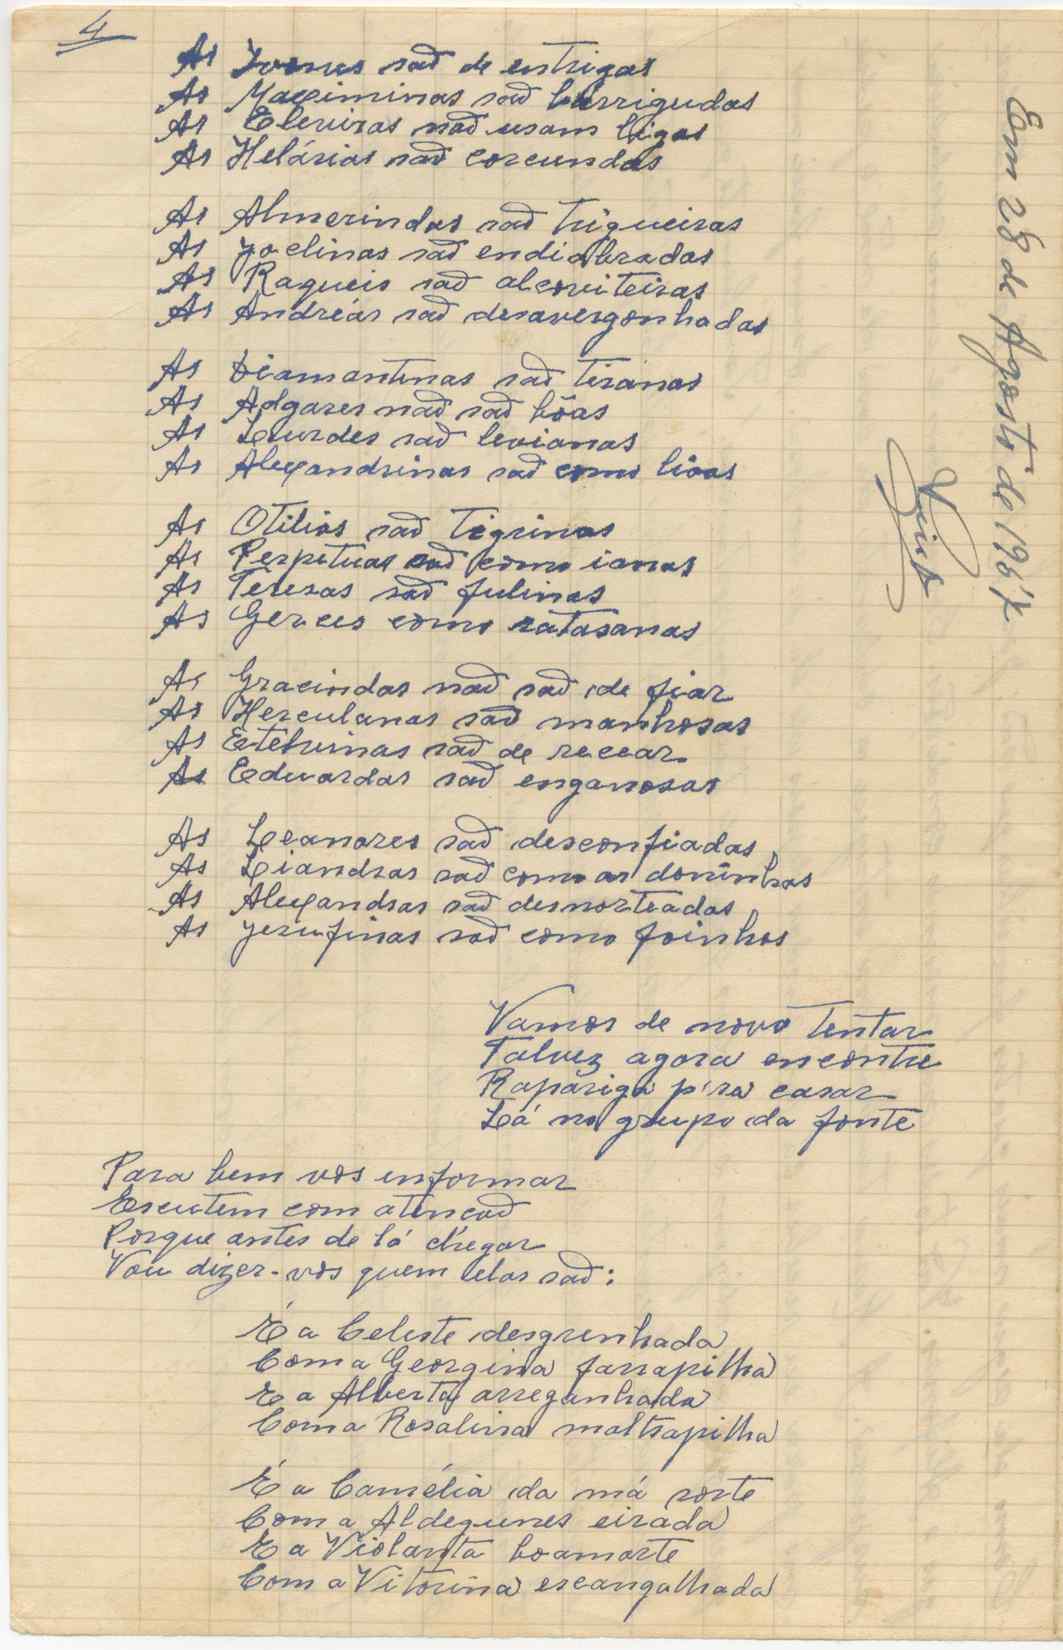 4
As Ivones são de entrigas
As Maximinas são barrigudas
As Eleviras não usam ligas
As Helárias são corcundas
As Almerindas são trigueiras
As Joelinas são endiabradas
As Raqueis são alcoviteiras
As Andréas são desavergonhadas
As Diamantinas são tiranas
As Adgares não são bôas
As Lurdes são levianas
As Alexandrinas são como liôas
As Otilias são tigrinas
As Perpétuas são como ianas
As Teresas são fulinas
As Gerces como ratasanas
As Gracindas não são de fiar
As Herculanas são manhosas
As Etelvinas são de recear
As Eduardas são enganosas
As Leanores são desconfiadas
As Liandras são como as doninhas
As Alexandras são desnorteadas
As Jerufinas são como foinhas
Vamos de novo tentar
Talvez agora encontre
Rapariga p'ra casar
Lá no grupo da fonte
Para bem vos informar
Escutem com atenção
Porque antes de lá chegar
Vou dizer-vos quem elas são:
É a Celeste desgrenhada
Com a Georgina farrapilha
E a Alberta arreganhada
Com a Rosalina maltrapilha
É a Camélia da má sorte
Com a Aldegunes eirada
E a Violanta boamorte
Com a Vitorina escangalhada
Em 28 de Agosto de 1967